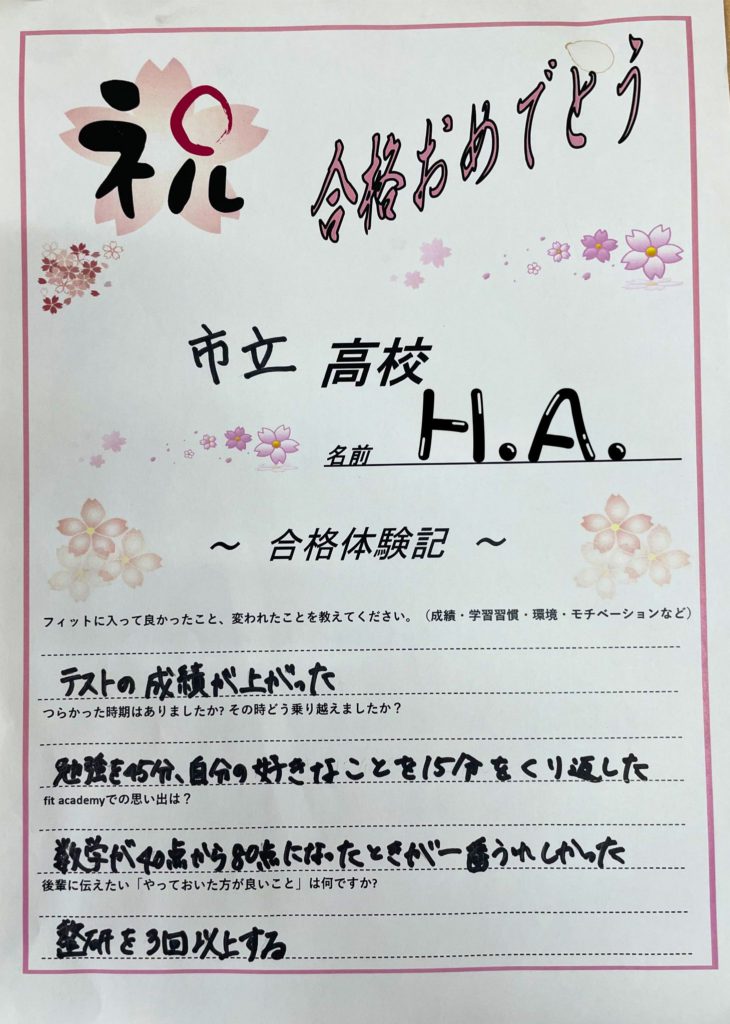 祝
合格おめでとう
市立 高校
名前 H.A.
～ 合格体験記 ～
フィットに入って良かったこと、変われたことを教えてください。（成績・学習習慣・環境・モチベーションなど）
テストの成績が上がった
つらかった時期はありましたか? その時どう乗り越えましたか？
勉強を45分、自分の好きなことを15分をくり返した
fit academyでの思い出は？
数学が40点から80点になったときが一番うれしかった
後輩に伝えたい「やっておいた方が良いこと」は何ですか?
整研を3回以上する